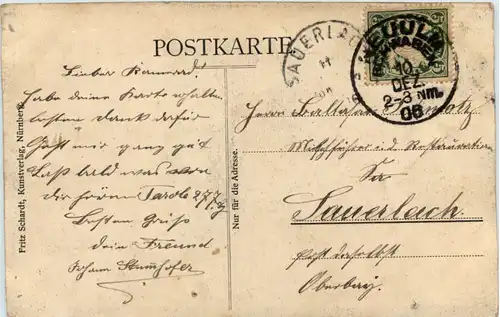 POSTKARTE
SAUERLA
NEU-ULM
10
DEZ.
2-3 Nm.
06
Fritz Schardt, Kunstverlag, Nürnberg.
Nur für die Adresse.
Lieber Kamerad!
habe deine Karte erhalten
besten Dank dafür
Geht mir ganz gut
Laß bald was von
dir hören Parole 277
Besten Gruß
dein Freund
Johann
Herrn
und Restauration
Sauerlach
Post daselbst
Oberbay.